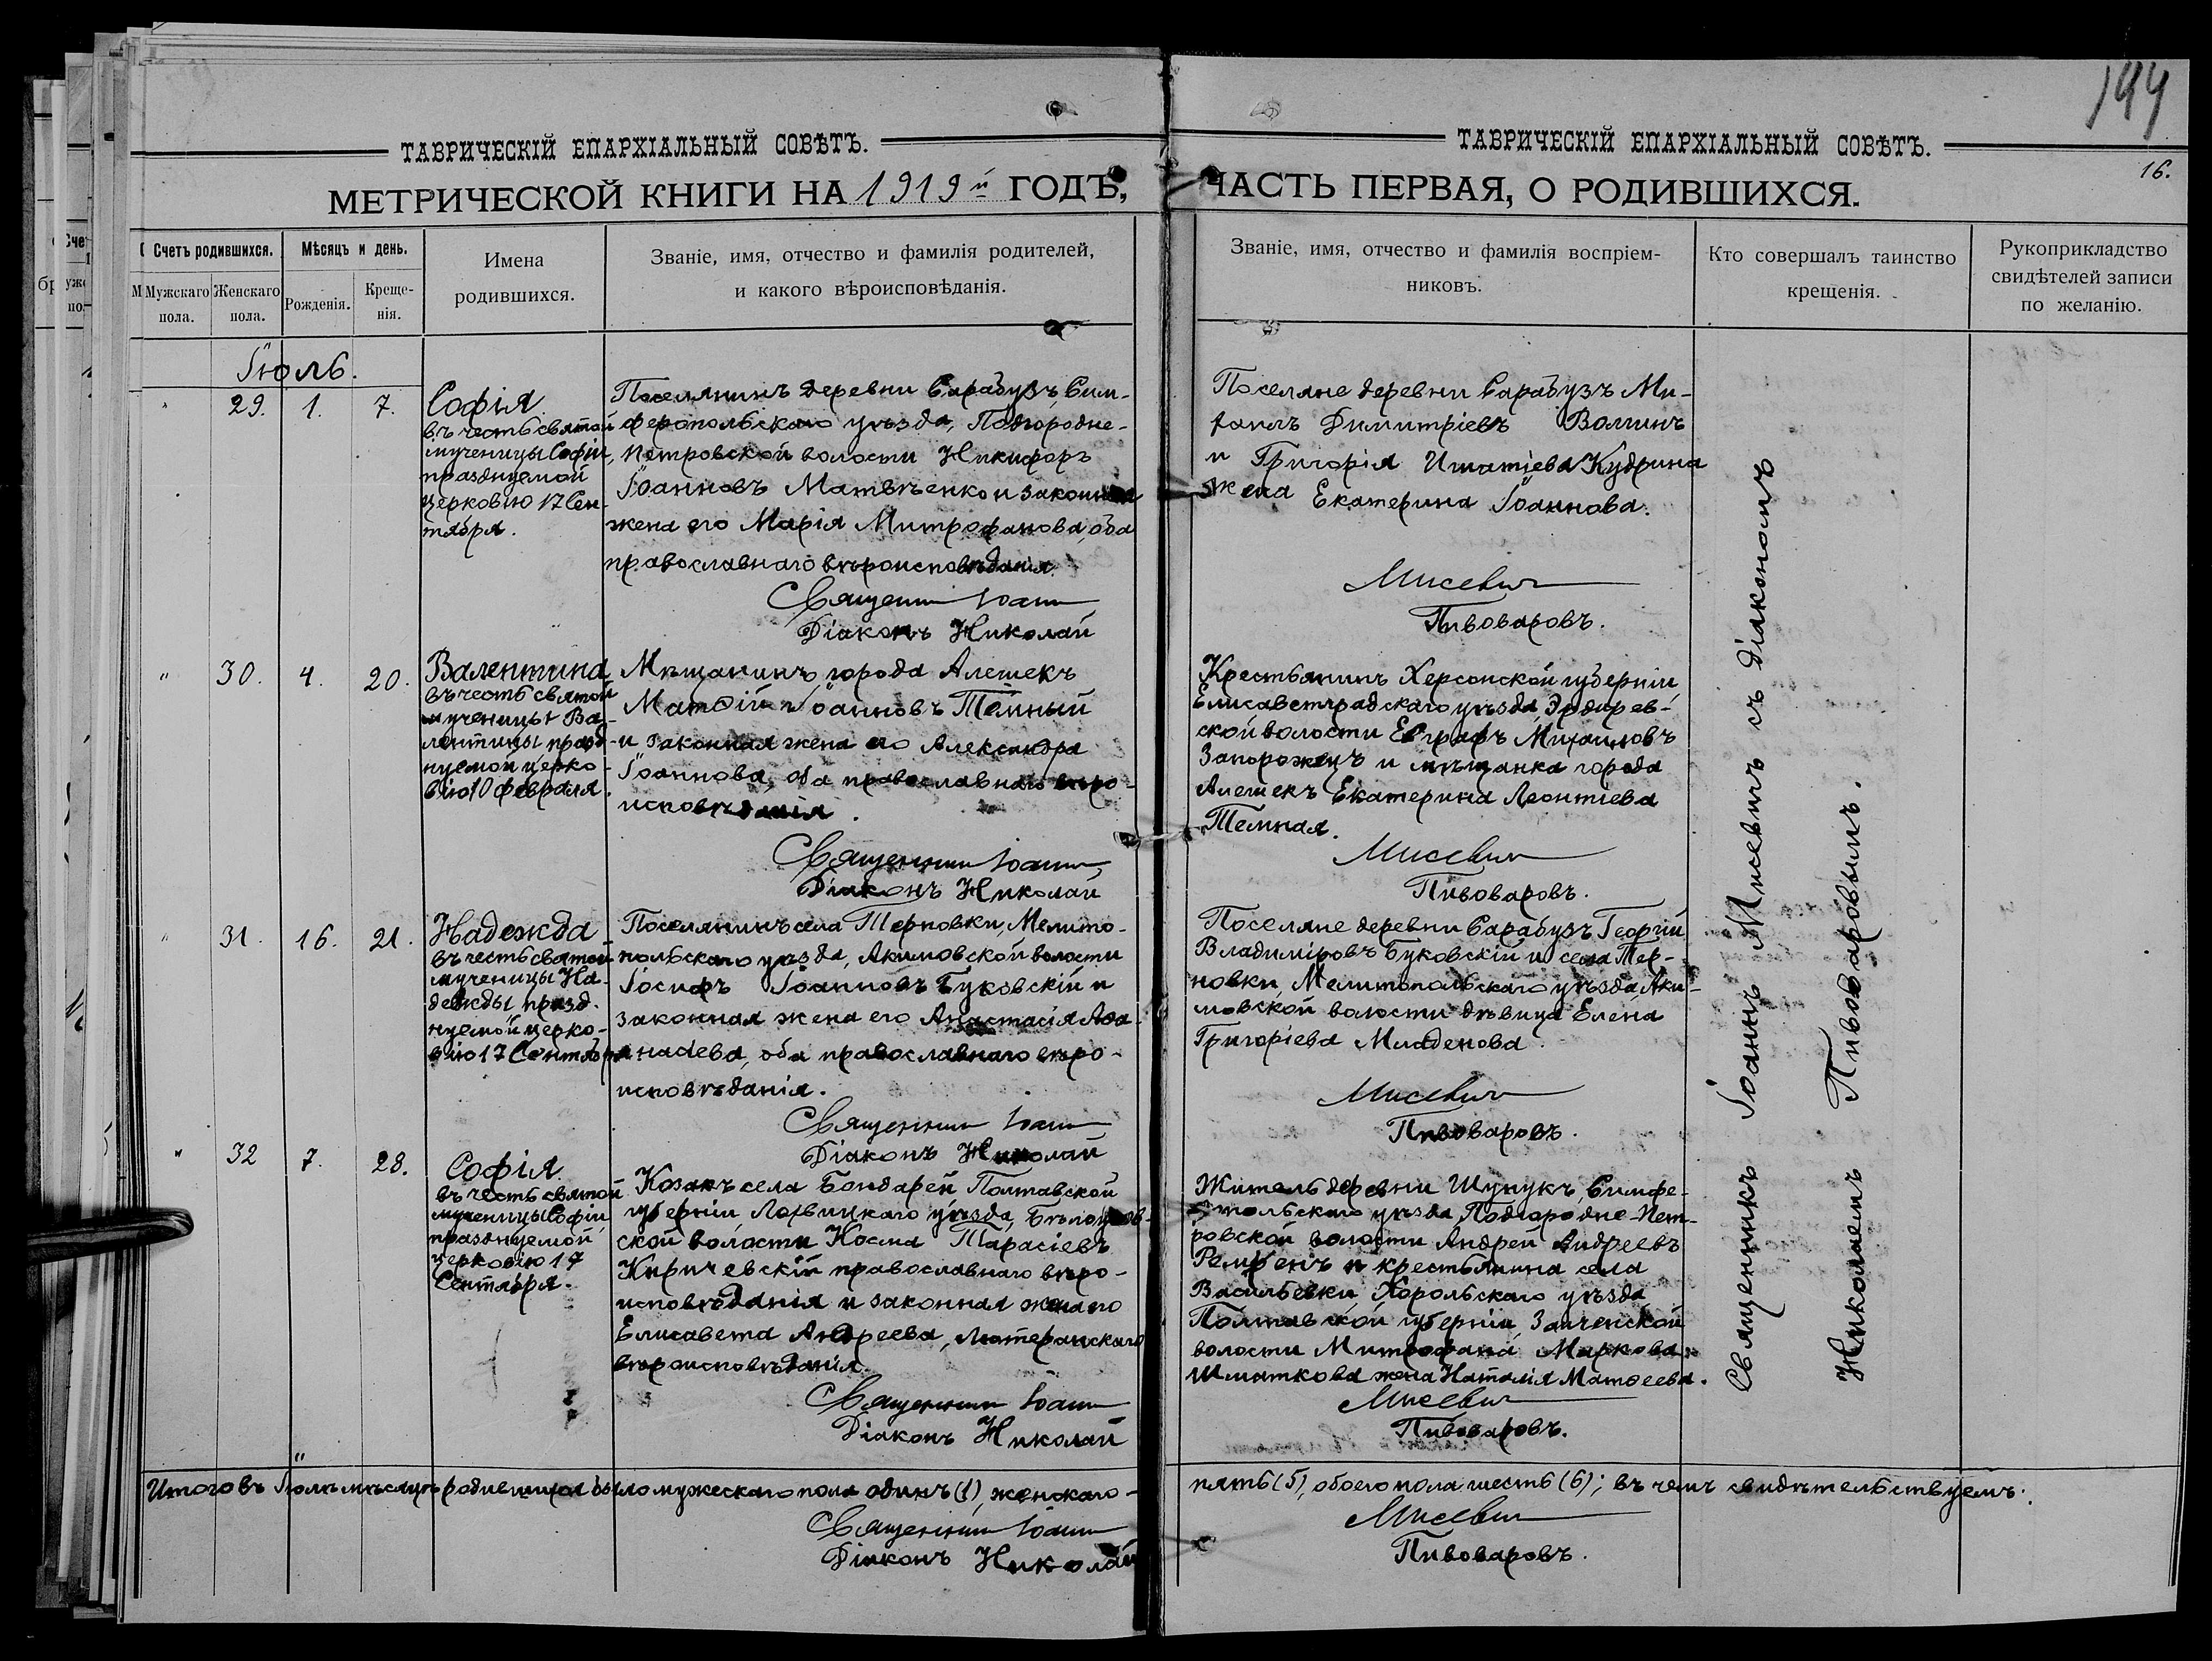 194
ТАВРИЧЕСКІЙ ЕПАРХІАЛЬНЫЙ СОВѢТЪ.
МЕТРИЧЕСКОЙ КНИГИ НА 1919й ГОДЪ,
Счетъ родившихся.
Мужскаго пола.
Женскаго пола.
Мѣсяцъ и день.
Рожденія.
Креще-
нія.
Имена
родившихся.
Званіе, имя, отчество и фамилія родителей,
и какого вѣроисповѣданія.
Іюль.
" 29. 1. 7.
Софія
въ честь святой
мученицы Софіи,
празднуемой
церковію 17 Сен-
тября.
Поселянинъ деревни Сарабузъ, Сим-
феропольскаго уѣзда, Подгородне-
Петровской волости Никифоръ
Іоанновъ Матвѣенко и законная
жена его Марія Митрофанова, оба
православнаго вѣроисповѣданія.
Священникъ Іоаннъ
Діаконъ Николай
" 30. 4. 20.
Валентина
въ честь святой
мученицы Ва-
лентины празд-
нуемой церко-
вію 10 февраля.
Мѣщанинъ города Алешекъ
Матѳій Іоанновъ Тёмный
и законная жена его Александра
Іоаннова, оба православнаго вѣро-
исповѣданія.
Священникъ Іоаннъ
Діаконъ Николай
" 31. 16. 21.
Надежда
въ честь святой
мученицы На-
дежды, празд-
нуемой церко-
вію 17 Сентября
Поселянинъ села Терновки, Мелито-
польскаго уѣзда, Акимовской волости
Іосифъ Іоанновъ Буковскій и
законная жена его Анастасія Аѳа-
насіева, оба православнаго вѣро-
исповѣданія.
Священникъ Іоаннъ
Діаконъ Николай
" 32 7. 28.
Софія
въ честь святой
мученицы Софіи
празднуемой
церковію 17
Сентября.
Козакъ села Бондарей Полтавской
губерніи Лохвицкаго уѣзда,
ской волости Косма Тарасіевъ
Киричевскій православнаго вѣро-
исповѣданія и законная жена его
Елисавета Андреева, лютеранскаго
вѣроисповѣданія.
Священникъ Іоаннъ
Діаконъ Николай
Итого въ Іюлѣ мѣсяцѣ родившихся было мужескаго пола одинъ (1), женскаго-
Священникъ Іоаннъ
Діаконъ Николай
ТАВРИЧЕСКІЙ ЕПАРХІАЛЬНЫЙ СОВѢТЪ.
16.
ЧАСТЬ ПЕРВАЯ, О РОДИВШИХСЯ.
Званіе, имя, отчество и фамилія воспріем-
никовъ.
Кто совершалъ таинство
крещенія.
Рукоприкладство
свидѣтелей записи
по желанію.
Поселяне деревни Сарабузъ Ми-
хаилъ Димитріевъ Волминъ
и Григорія Игнатіева Кудрина
жена Екатерина Іоаннова.
Мисевичъ
Пивоваровъ.
Крестьянинъ Херсонской губерніи
Елисаветградскаго уѣзда,
ской волости Евграфъ Михаиловъ
Запорожецъ и мѣщанка города
Алешекъ Екатерина Леонтіева
Темная.
Мисевичъ
Пивоваровъ.
Поселяне деревни Сарабузъ Георгій
Владиміровъ Буковскій и села Тер-
новки, Мелитопольскаго уѣзда, Аки-
мовской волости дѣвица Елена
Григоріева Младенова.
Мисевичъ
Пивоваровъ.
Житель деревни Шунукъ, Симфе-
ропольскаго уѣзда, Подгородне-Пет-
ровской волости Андрей Андреевъ
и крестьянина села
Васильевки Хорольскаго уѣзда
Полтавской губерніи,
волости Митрофана Маркова
Шматкова жена Наталія Матѳеева.
Мисевичъ
Пивоваровъ.
пять (5), обоего пола шесть (6); въ чемъ свидѣтельствуемъ:
Мисевичъ
Пивоваровъ.
Священникъ Іоаннъ Мисевичъ съ діакономъ
Николаемъ Пивоваровымъ.